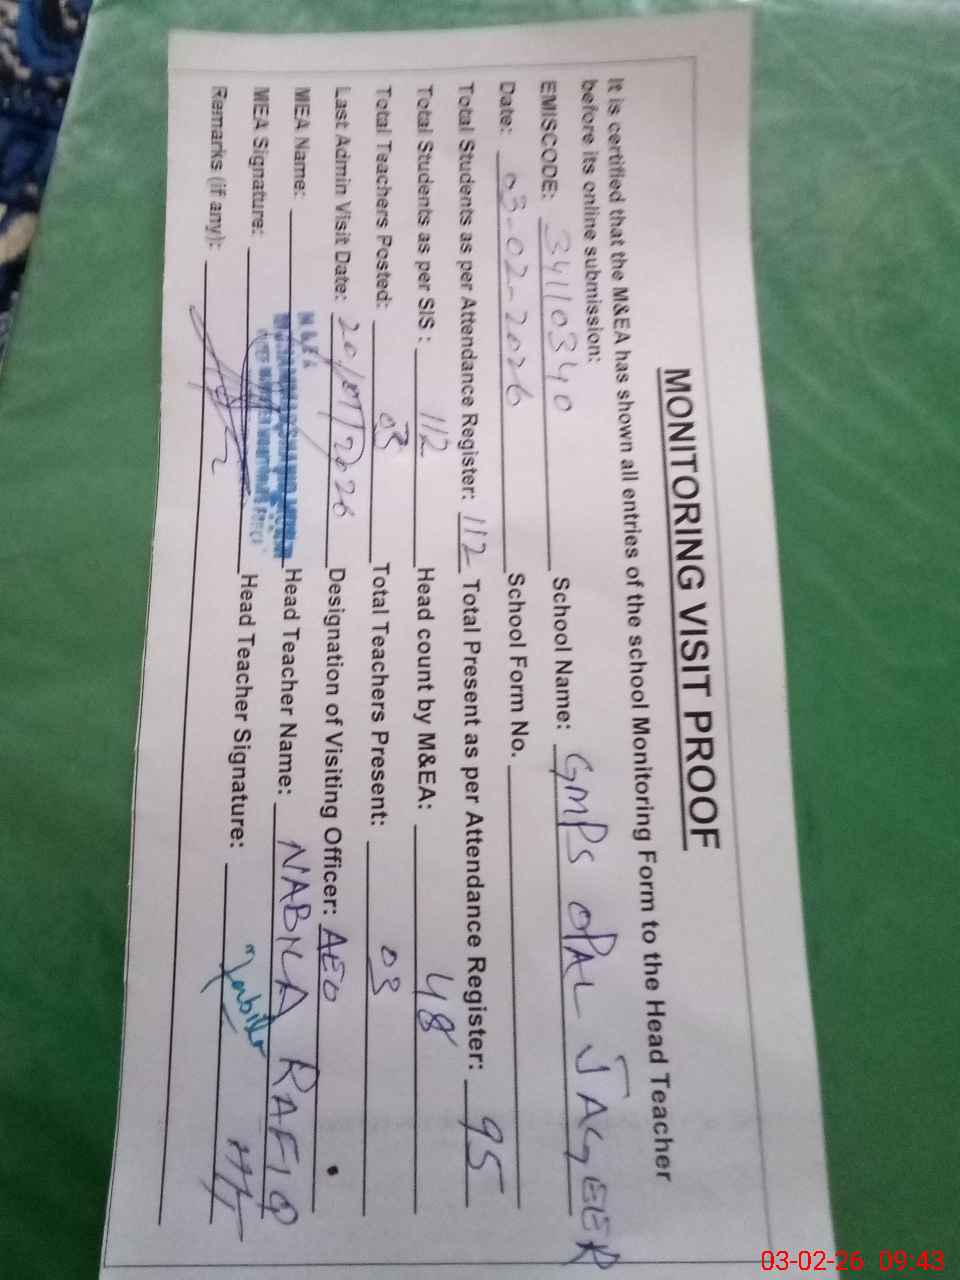 MONITORING VISIT PROOF
It is certified that the M&EA has shown all entries of the school Monitoring Form to the Head Teacher
before its online submission:
EMISCODE: 34110340 School Name: GMPS OPAL JAGEER
Date: 03-02-2026 School Form No.
Total Students as per Attendance Register: 112 Total Present as per Attendance Register: 95
Total Students as per SIS: 112 Head count by M&EA: 48
Total Teachers Posted: 03 Total Teachers Present: 03
Last Admin Visit Date: 20/01/2026 Designation of Visiting Officer: AEO
MEA Name: M&EA Head Teacher Name: NABILA RAFIQ
MEA Signature: Head Teacher Signature: Nabila HT
Remarks (if any):
03-02-26 09:43